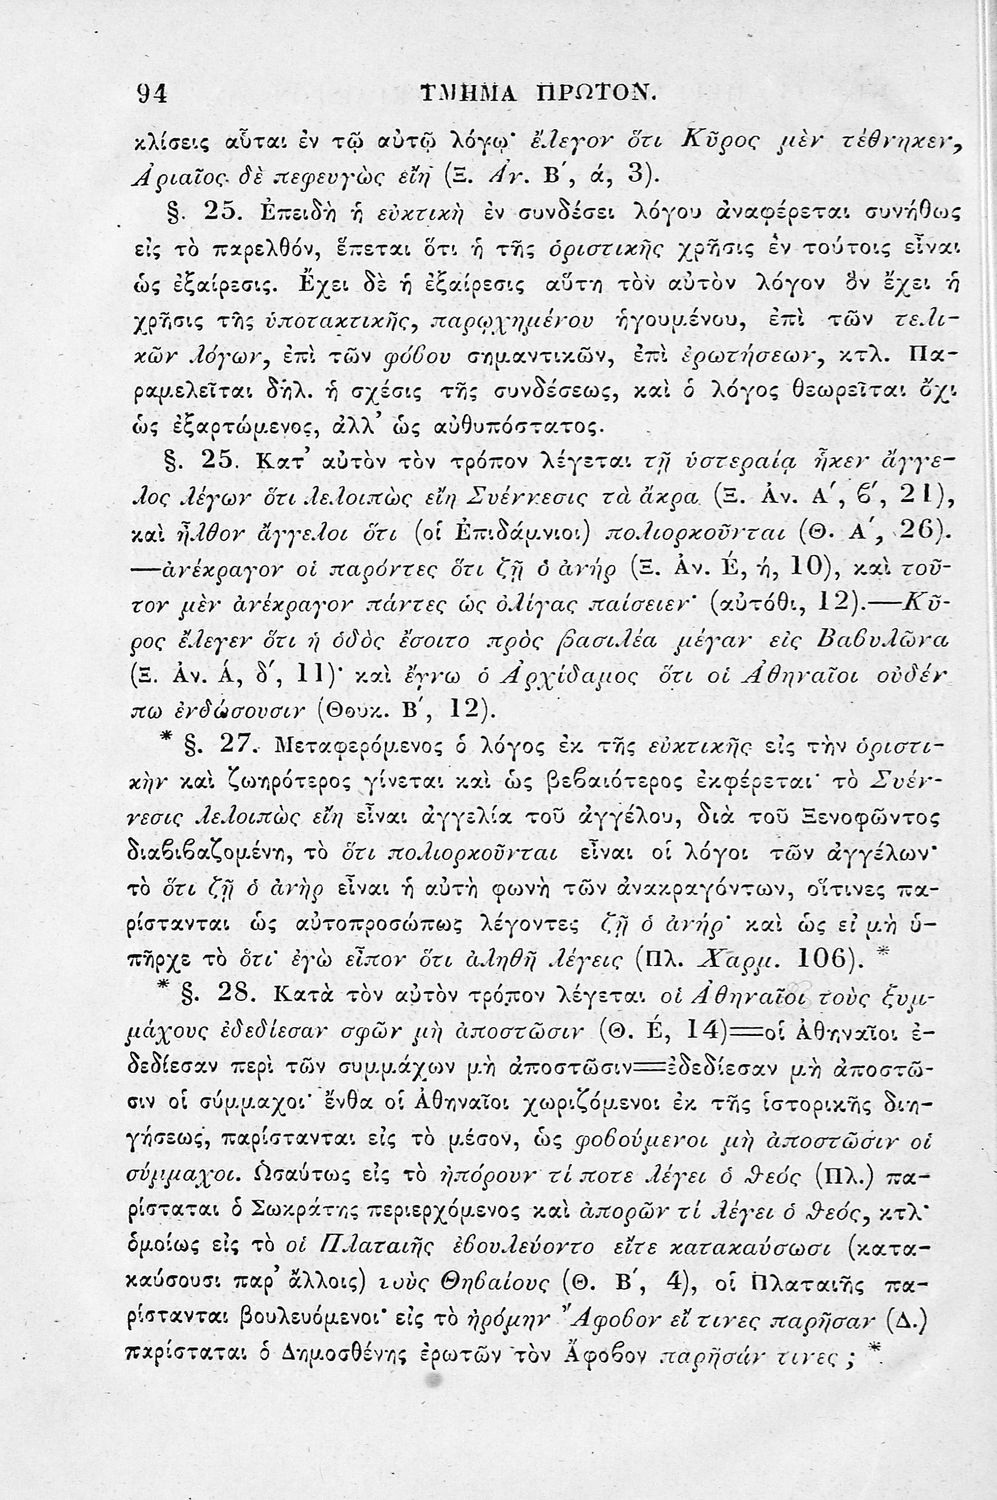 94 ΤΜΗΜΑ ΠΡΩΤΟΝ.
κλίσεις αὗται ἐν τῷ αὐτῷ λόγῳ· ἔλεγον ὅτι Κῦρος μὲν τέθνηκεν,
Ἀριαῖος δὲ πεφευγὼς εἴη (Ξ. Ἀν. Β΄, ά, 3).
§. 25. Ἐπειδὴ ἡ εὐκτικὴ ἐν συνδέσει λόγου ἀναφέρεται συνήθως
εἰς τὸ παρελθόν, ἕπεται ὅτι ἡ τῆς ὁριστικῆς χρῆσις ἐν τούτοις εἶναι
ὡς ἐξαίρεσις. Ἔχει δὲ ἡ ἐξαίρεσις αὕτη τὸν αὐτὸν λόγον ὃν ἔχει ἡ
χρῆσις τῆς ὑποτακτικῆς, παρῳχημένου ἡγουμένου, ἐπὶ τῶν τελι-
κῶν λόγων, ἐπὶ τῶν φόβου σημαντικῶν, ἐπὶ ἐρωτήσεων, κτλ. Πα-
ραμελεῖται δηλ. ἡ σχέσις τῆς συνδέσεως, καὶ ὁ λόγος θεωρεῖται ὄχι
ὡς ἐξαρτώμενος, ἀλλ᾽ ὡς αὐθυπόστατος.
§. 25. Κατ᾽ αὐτὸν τὸν τρόπον λέγεται τῇ ὑστεραίᾳ ἧκεν ἄγγε-
λος λέγων ὅτι λελοιπὼς εἴη Συέννεσις τὰ ἄκρα (Ξ. Ἀν. Α΄, ϐ΄, 21),
καὶ ἦλθον ἄγγελοι ὅτι (οἱ Ἐπιδάμνιοι) πολιορκοῦνται (Θ. Α΄, 26).
—ἀνέκραγον οἱ παρόντες ὅτι ζῇ ὁ ἀνήρ (Ξ. Ἀν. Έ, ή, 10), καὶ τοῦ-
τον μὲν ἀνέκραγον πάντες ὡς ὀλίγας παίσειεν· (αὐτόθι, 12).—Κῦ-
ρος ἔλεγεν ὅτι ἡ ὁδὸς ἔσοιτο πρὸς βασιλέα μέγαν εἰς Βαβυλῶνα
(Ξ. Ἀν. Ά, δ΄, 11)· καὶ ἔγνω ὁ Ἀρχίδαμος ὅτι οἱ Ἀθηναῖοι οὐδέν
πω ἐνδώσουσιν (Θουκ. Β΄, 12).
* §. 27. Μεταφερόμενος ὁ λόγος ἐκ τῆς εὐκτικῆς εἰς τὴν ὁριστι-
κὴν καὶ ζωηρότερος γίνεται καὶ ὡς βεβαιότερος ἐκφέρεται· τὸ Συέν-
νεσις λελοιπὼς εἴη εἶναι ἀγγελία τοῦ ἀγγέλου, διὰ τοῦ Ξενοφῶντος
διαβιβαζομένη, τὸ ὅτι πολιορκοῦνται εἶναι οἱ λόγοι τῶν ἀγγέλων·
τὸ ὅτι ζῇ ὁ ἀνὴρ εἶναι ἡ αὐτὴ φωνὴ τῶν ἀνακραγόντων, οἵτινες πα-
ρίστανται ὡς αὐτοπροσώπως λέγοντες ζῇ ὁ ἀνήρ· καὶ ὡς εἰ μὴ ὑ-
πῆρχε τὸ ὅτι· ἐγὼ εἶπον ὅτι ἀληθῆ λέγεις (Πλ. Χαρμ. 106). *
* §. 28. Κατὰ τὸν αὐτὸν τρόπον λέγεται οἱ Ἀθηναῖοι τοὺς ξυμ-
μάχους ἐδεδίεσαν σφῶν μὴ ἀποστῶσιν (Θ. Έ, 14)=οἱ Ἀθηναῖοι ἐ-
δεδίεσαν περὶ τῶν συμμάχων μὴ ἀποστῶσιν=ἐδεδίεσαν μὴ ἀποστῶ-
σιν οἱ σύμμαχοι· ἔνθα οἱ Ἀθηναῖοι χωριζόμενοι ἐκ τῆς ἱστορικῆς διη-
γήσεως, παρίστανται εἰς τὸ μέσον, ὡς φοβούμενοι μὴ ἀποστῶσιν οἱ
σύμμαχοι. Ὡσαύτως εἰς τὸ ἠπόρουν τί ποτε λέγει ὁ θεός (Πλ.) πα-
ρίσταται ὁ Σωκράτης περιερχόμενος καὶ ἀπορῶν τί λέγει ὁ θεός, κτλ·
ὁμοίως εἰς τὸ οἱ Πλαταιῆς ἐβουλεύοντο εἴτε κατακαύσωσι (κατα-
καύσουσι παρ᾽ ἄλλοις) τοὺς Θηβαίους (Θ. Β΄, 4), οἱ Πλαταιῆς πα-
ρίστανται βουλευόμενοι· εἰς τὸ ἠρόμην Ἄφοβον εἴ τινες παρῆσαν (Δ.)
παρίσταται ὁ Δημοσθένης ἐρωτῶν τὸν Ἄφοβον παρῆσάν τινες ; *